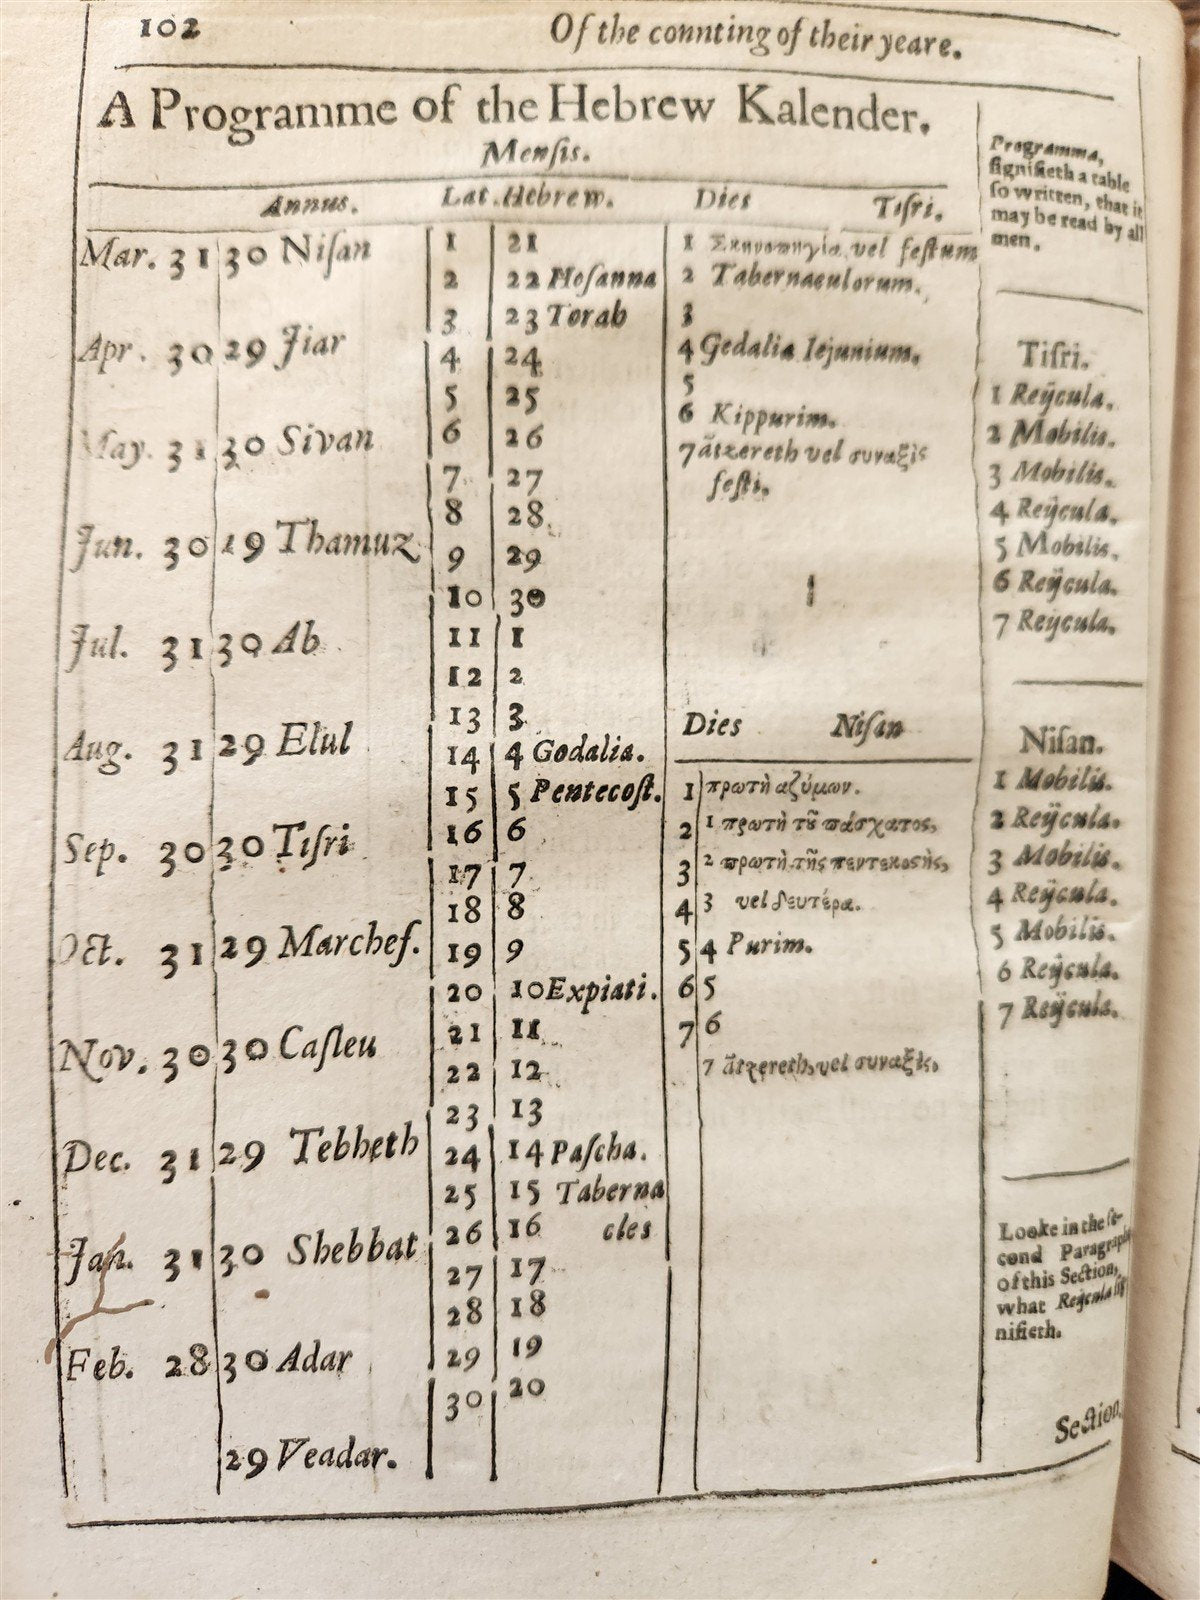 102
Of the connting of their yeare.
A Programme of the Hebrew Kalender.
Menſis.
Annus.
Mar. 31 30 Niſan
Apr. 30 29 Jiar
May. 31 30 Sivan
Jun. 30 19 Thamuz
Jul. 31 30 Ab
Aug. 31 29 Elul
Sep. 30 30 Tiſri
Oct. 31 29 Marcheſ.
Nov. 30 30 Caſleu
Dec. 31 29 Tebheth
Jan. 31 30 Shebbat
Feb. 28 30 Adar
29 Veadar.
Lat. Hebrew.
1 21
2 22 Hoſanna
3 23 Torab
4 24
5 25
6 26
7 27
8 28
9 29
10 30
11 1
12 2
13 3
14 4 Godalia.
15 5 Pentecoſt.
16 6
17 7
18 8
19 9
20 10 Expiati.
21 11
22 12
23 13
24 14 Paſcha.
25 15 Taberna
26 16 cles
27 17
28 18
29 19
30 20
Dies Tiſri.
1 Σκηνοπηγία vel feſtum
2 Tabernaculorum.
3
4 Gedalia Iejunium.
5
6 Kippurim.
7 ätzereth vel συναξὶς
feſti.
Dies Niſan
1 πρωτὴ αζύμων.
2 1 πρωτὴ τῦ πάσχατος,
3 2 πρωτὴ τῆς πεντεκοςῆς,
4 3 vel δευτέρα.
5 4 Purim.
6 5
7 6
7 ätzereth, vel συναξὶς,
Programma,
ſignifieth a table
ſo written, that it
may be read by all
men.
Tiſri.
1 Reijcula.
2 Mobilis.
3 Mobilis.
4 Reijcula.
5 Mobilis.
6 Reijcula.
7 Reijcula.
Niſan.
1 Mobilis.
2 Reijcula.
3 Mobilis.
4 Reijcula.
5 Mobilis.
6 Reijcula.
7 Reijcula.
Looke in the ſe-
cond Paragraph
of this Section,
what Reijcula ſig
nifieth.
Section.